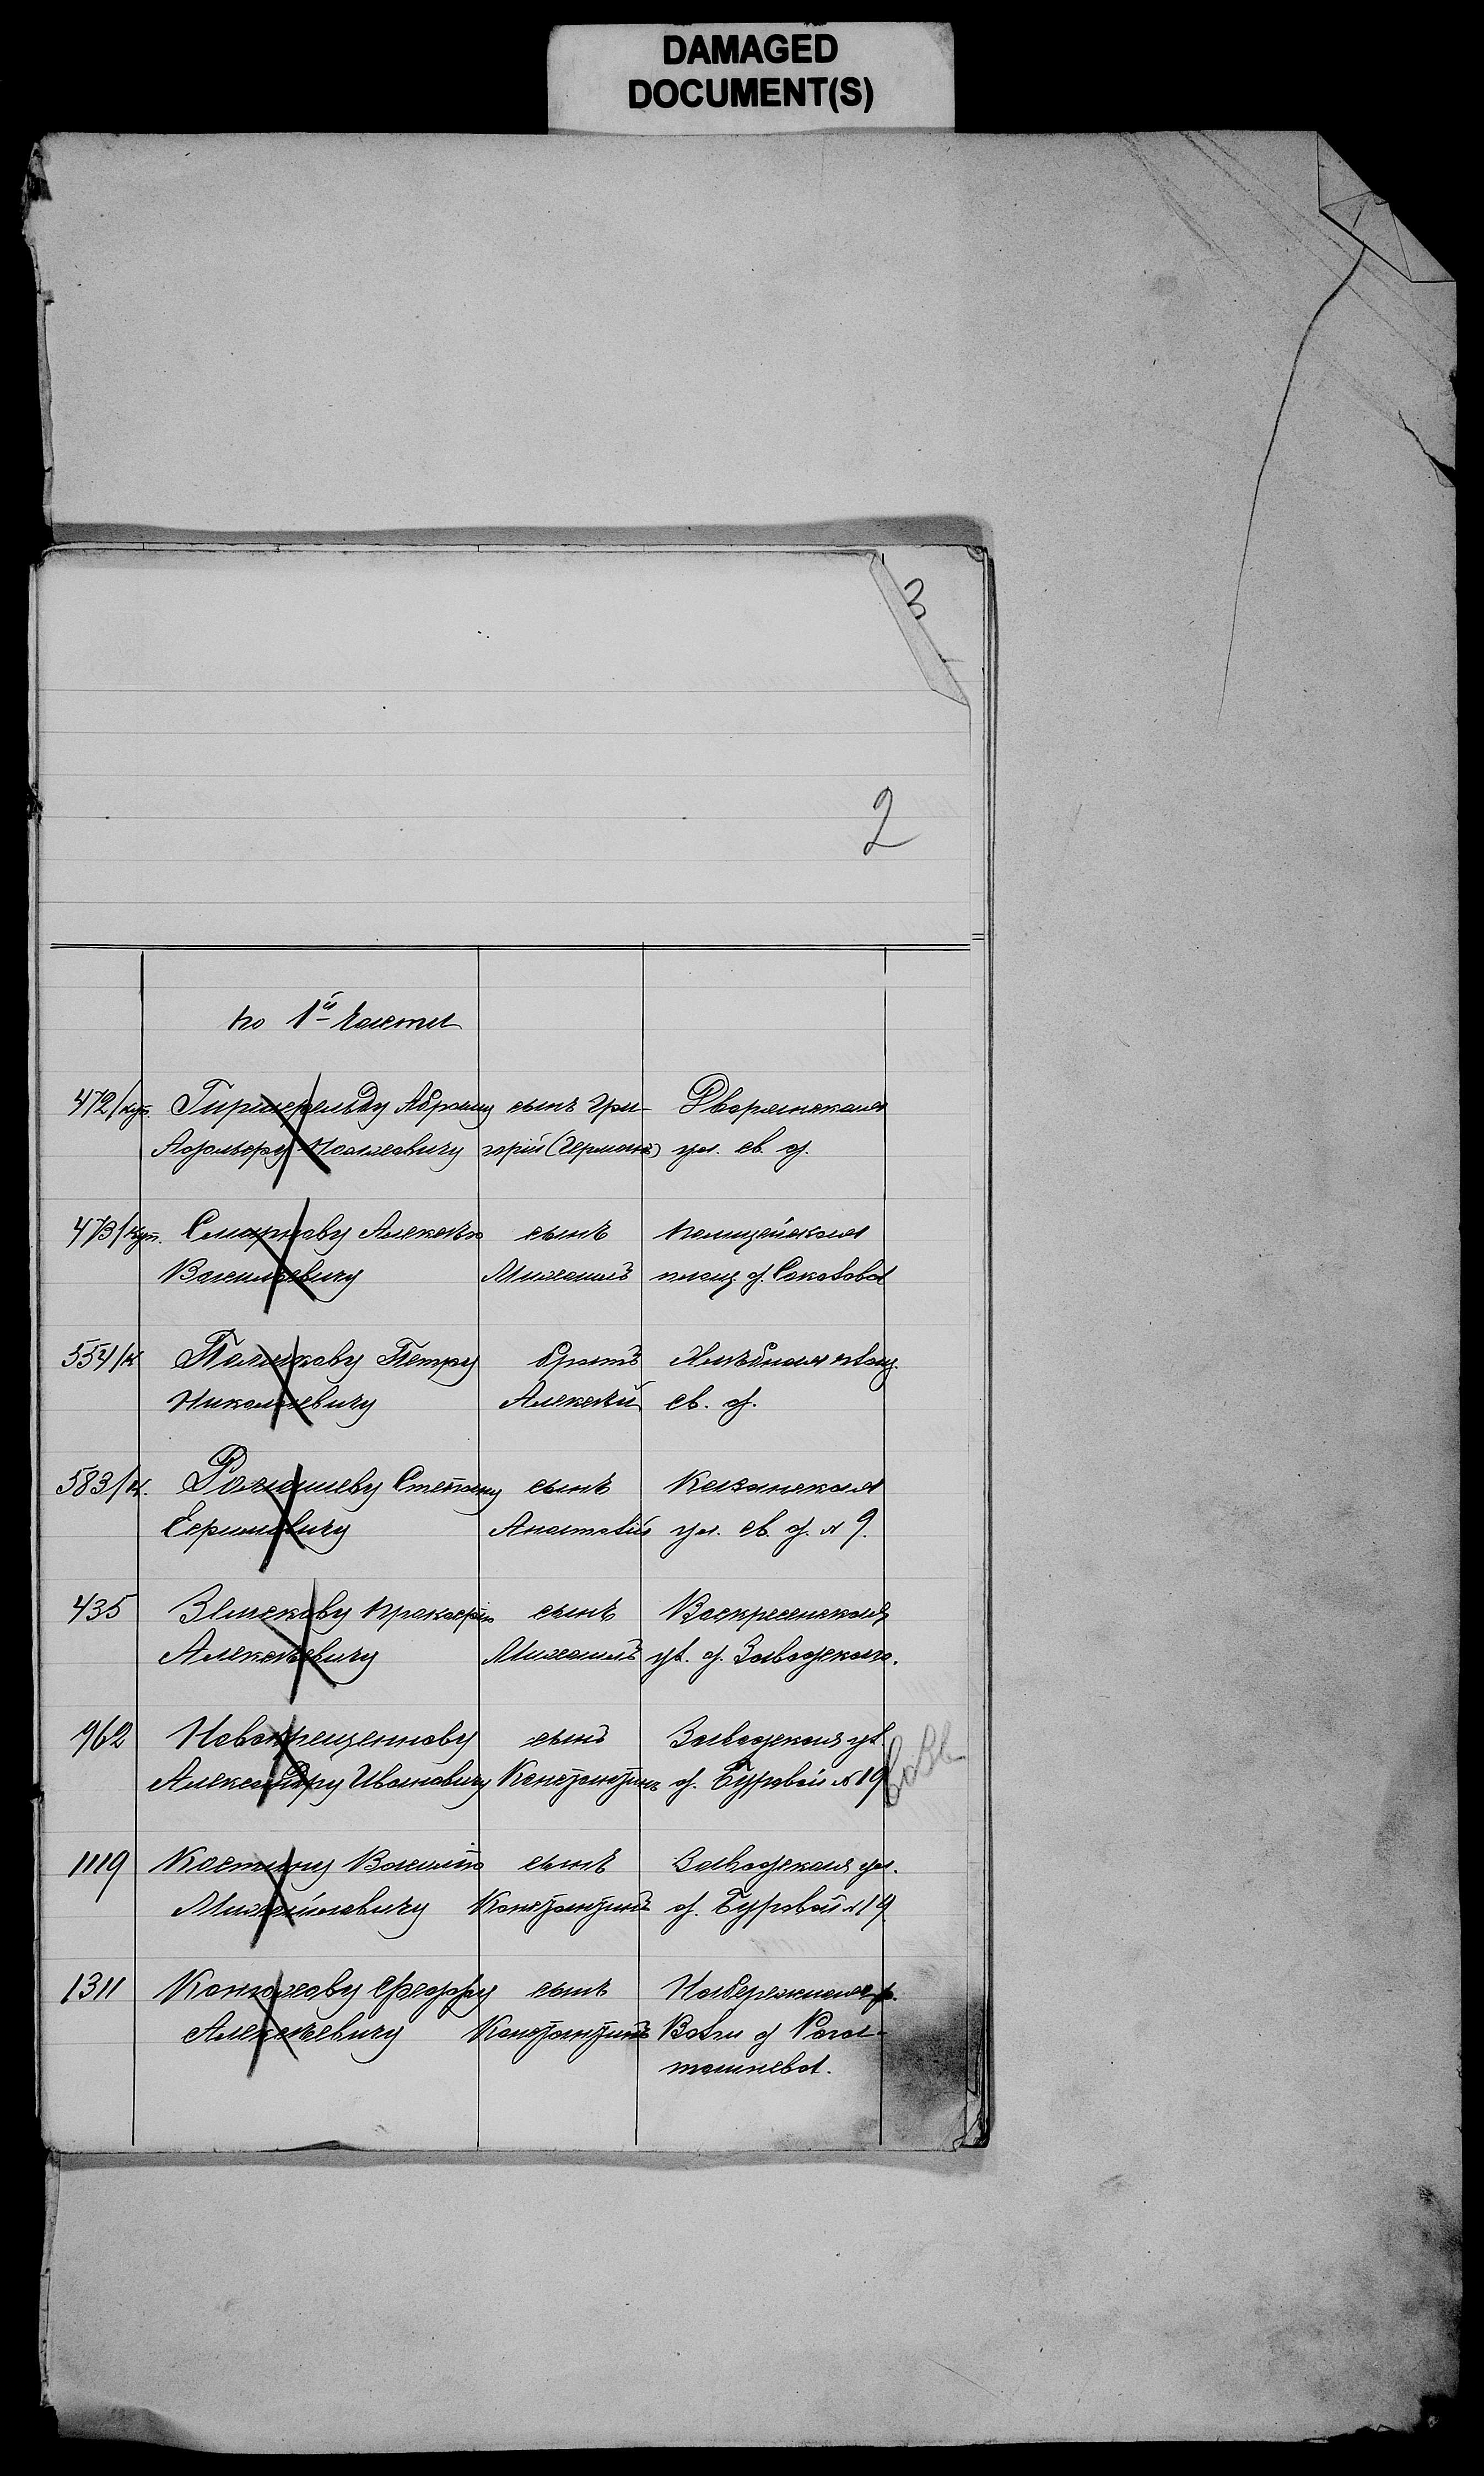 DAMAGED
DOCUMENT(S)
3
2
по 1й части
472/куп. Гиршфельду Абраму сынъ Гри- Дворянская
Адольфу Моисеевичу горій (Германъ) ул. св. д.
473/куп. Смирнову Алексѣю сынъ Полицейская
Васильевичу Михаилъ площ. д. Соколова
554/к Полякову Петру братъ Хлѣбная площ.
Николаевичу Алексѣй св. д.
583/к. Ромашеву Степану сынъ Казанская
Ефимовичу Анатолій ул. св. д. № 9.
435 Земскову Прокофію сынъ Воскресенская
Алексѣевичу Михаилъ ул. д. Заводского.
962 Новокрещеннову сынъ Заводская ул.
Александру Ивановичу Константинъ д. Буровой № 19
1119 Костину Василію сынъ Заводская ул.
Михайловичу Константинъ д. Буровой № 19
1311 Конюхову Федору сынъ Набережная р.
Алексѣевичу Константинъ Волги д